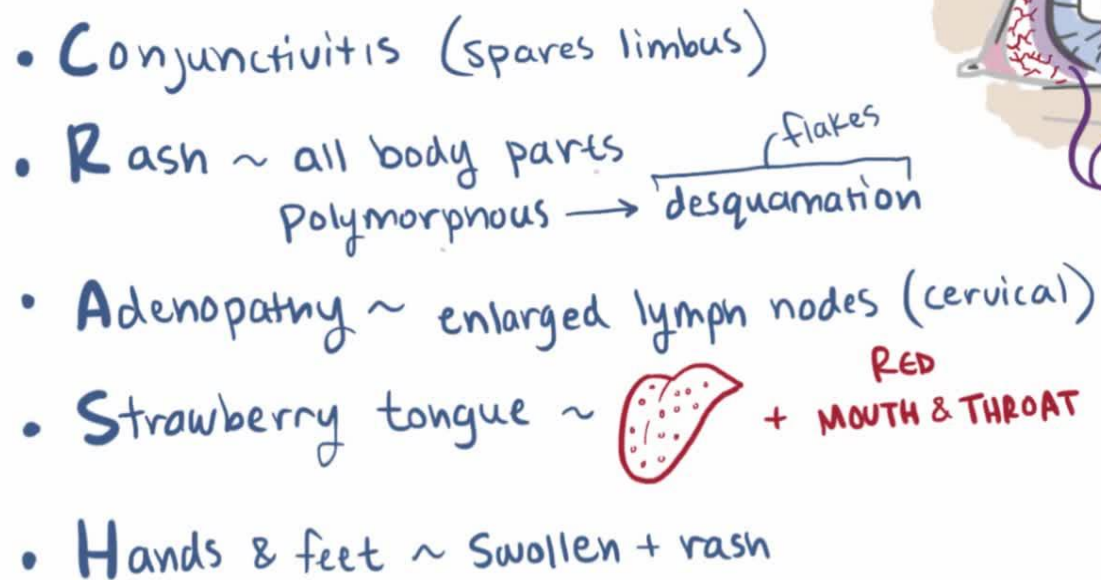 • Conjunctivitis (spares limbus)
flakes
• Rash ~ all body parts
Polymorphous → desquamation
• Adenopathy ~ enlarged lymph nodes (cervical)
• Strawberry tongue ~ + RED
MOUTH & THROAT
• Hands & feet ~ Swollen + rash